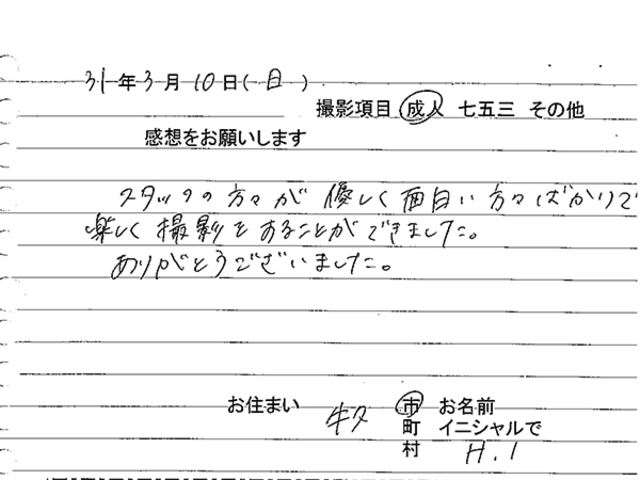 31年3月10日(日)
撮影項目 成人 七五三 その他
感想をお願いします
スタッフの方々が優しく面白い方々ばかりで
楽しく撮影をあることができました。
ありがとうございました。
お住まい 市 お名前
町 イニシャルで
村 H.I